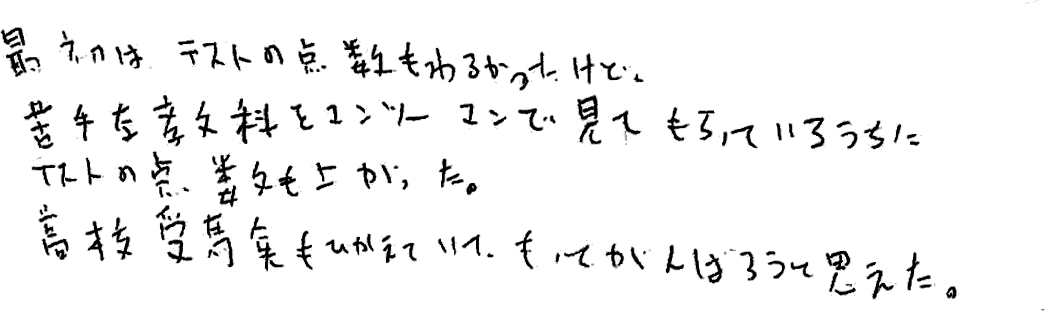 最初はテストの点数もわるかったけど、
苦手な教科をマンツーマンで見てもらっているうちに
テストの点数も上がった。
高校受験もひかえていて、もっとがんばろうと思えた。